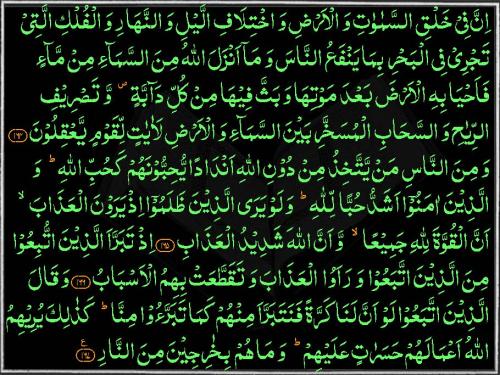 اِنَّ فِيْ خَلْقِ السَّمٰوٰتِ وَ الْاَرْضِ وَ اخْتِلَافِ الَّيْلِ وَ النَّهَارِ وَ الْفُلْكِ الَّتِيْ
تَجْرِيْ فِي الْبَحْرِ بِمَا يَنْفَعُ النَّاسَ وَ مَاۤ اَنْزَلَ اللّٰهُ مِنَ السَّمَآءِ مِنْ مَّآءٍ
فَاَحْيَا بِهِ الْاَرْضَ بَعْدَ مَوْتِهَا وَ بَثَّ فِيْهَا مِنْ كُلِّ دَآبَّةٍ ۪ وَّ تَصْرِيْفِ
الرِّيٰحِ وَ السَّحَابِ الْمُسَخَّرِ بَيْنَ السَّمَآءِ وَ الْاَرْضِ لَاٰيٰتٍ لِّقَوْمٍ يَّعْقِلُوْنَ ﴿۱۶۴﴾
وَ مِنَ النَّاسِ مَنْ يَّتَّخِذُ مِنْ دُوْنِ اللّٰهِ اَنْدَادًا يُّحِبُّوْنَهُمْ كَحُبِّ اللّٰهِ ؕ وَ
الَّذِيْنَ اٰمَنُوْۤا اَشَدُّ حُبًّا لِّلّٰهِ ؕ وَ لَوْ يَرَى الَّذِيْنَ ظَلَمُوْۤا اِذْ يَرَوْنَ الْعَذَابَ ۙ
اَنَّ الْقُوَّةَ لِلّٰهِ جَمِيْعًا ۙ وَّ اَنَّ اللّٰهَ شَدِيْدُ الْعَذَابِ ﴿۱۶۵﴾ اِذْ تَبَرَّاَ الَّذِيْنَ اتُّبِعُوْا
مِنَ الَّذِيْنَ اتَّبَعُوْا وَ رَاَوُا الْعَذَابَ وَ تَقَطَّعَتْ بِهِمُ الْاَسْبَابُ ﴿۱۶۶﴾ وَ قَالَ
الَّذِيْنَ اتَّبَعُوْا لَوْ اَنَّ لَنَا كَرَّةً فَنَتَبَرَّاَ مِنْهُمْ كَمَا تَبَرَّءُوْا مِنَّا ؕ كَذٰلِكَ يُرِيْهِمُ
اللّٰهُ اَعْمَالَهُمْ حَسَرٰتٍ عَلَيْهِمْ ؕ وَ مَا هُمْ بِخٰرِجِيْنَ مِنَ النَّارِ ﴿۱۶۷﴾ ع